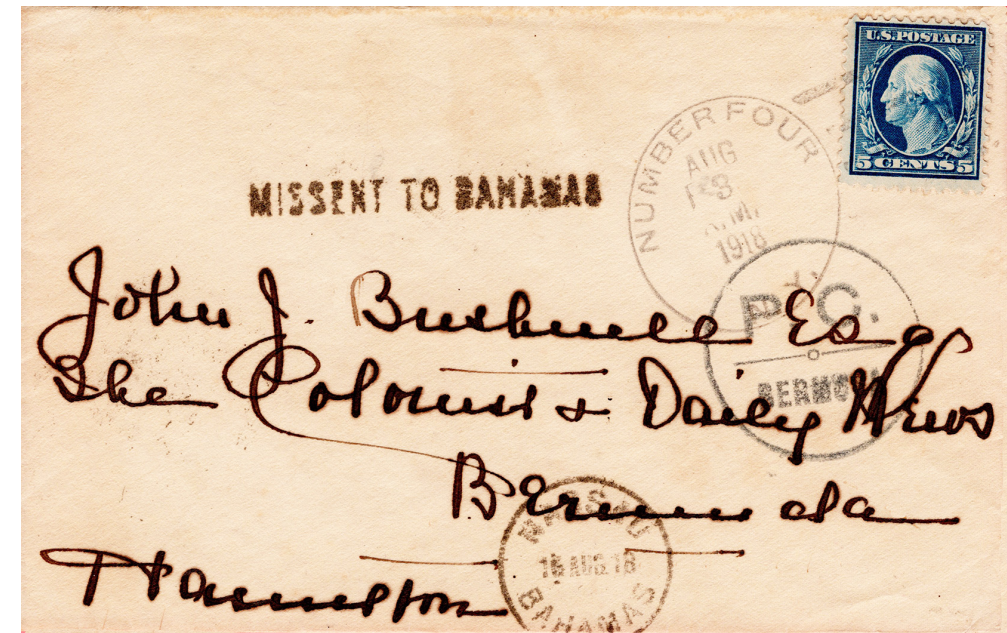 U.S. POSTAGE
5 CENTS 5
NUMBER FOUR
AUG
1918
MISSENT TO BAHAMAS
P. C.
BERMUDA
John J. Bushnell Esq
The Colonist & Daily News
Bermuda
Hamilton
NASSAU
16 AUG 18
BAHAMAS